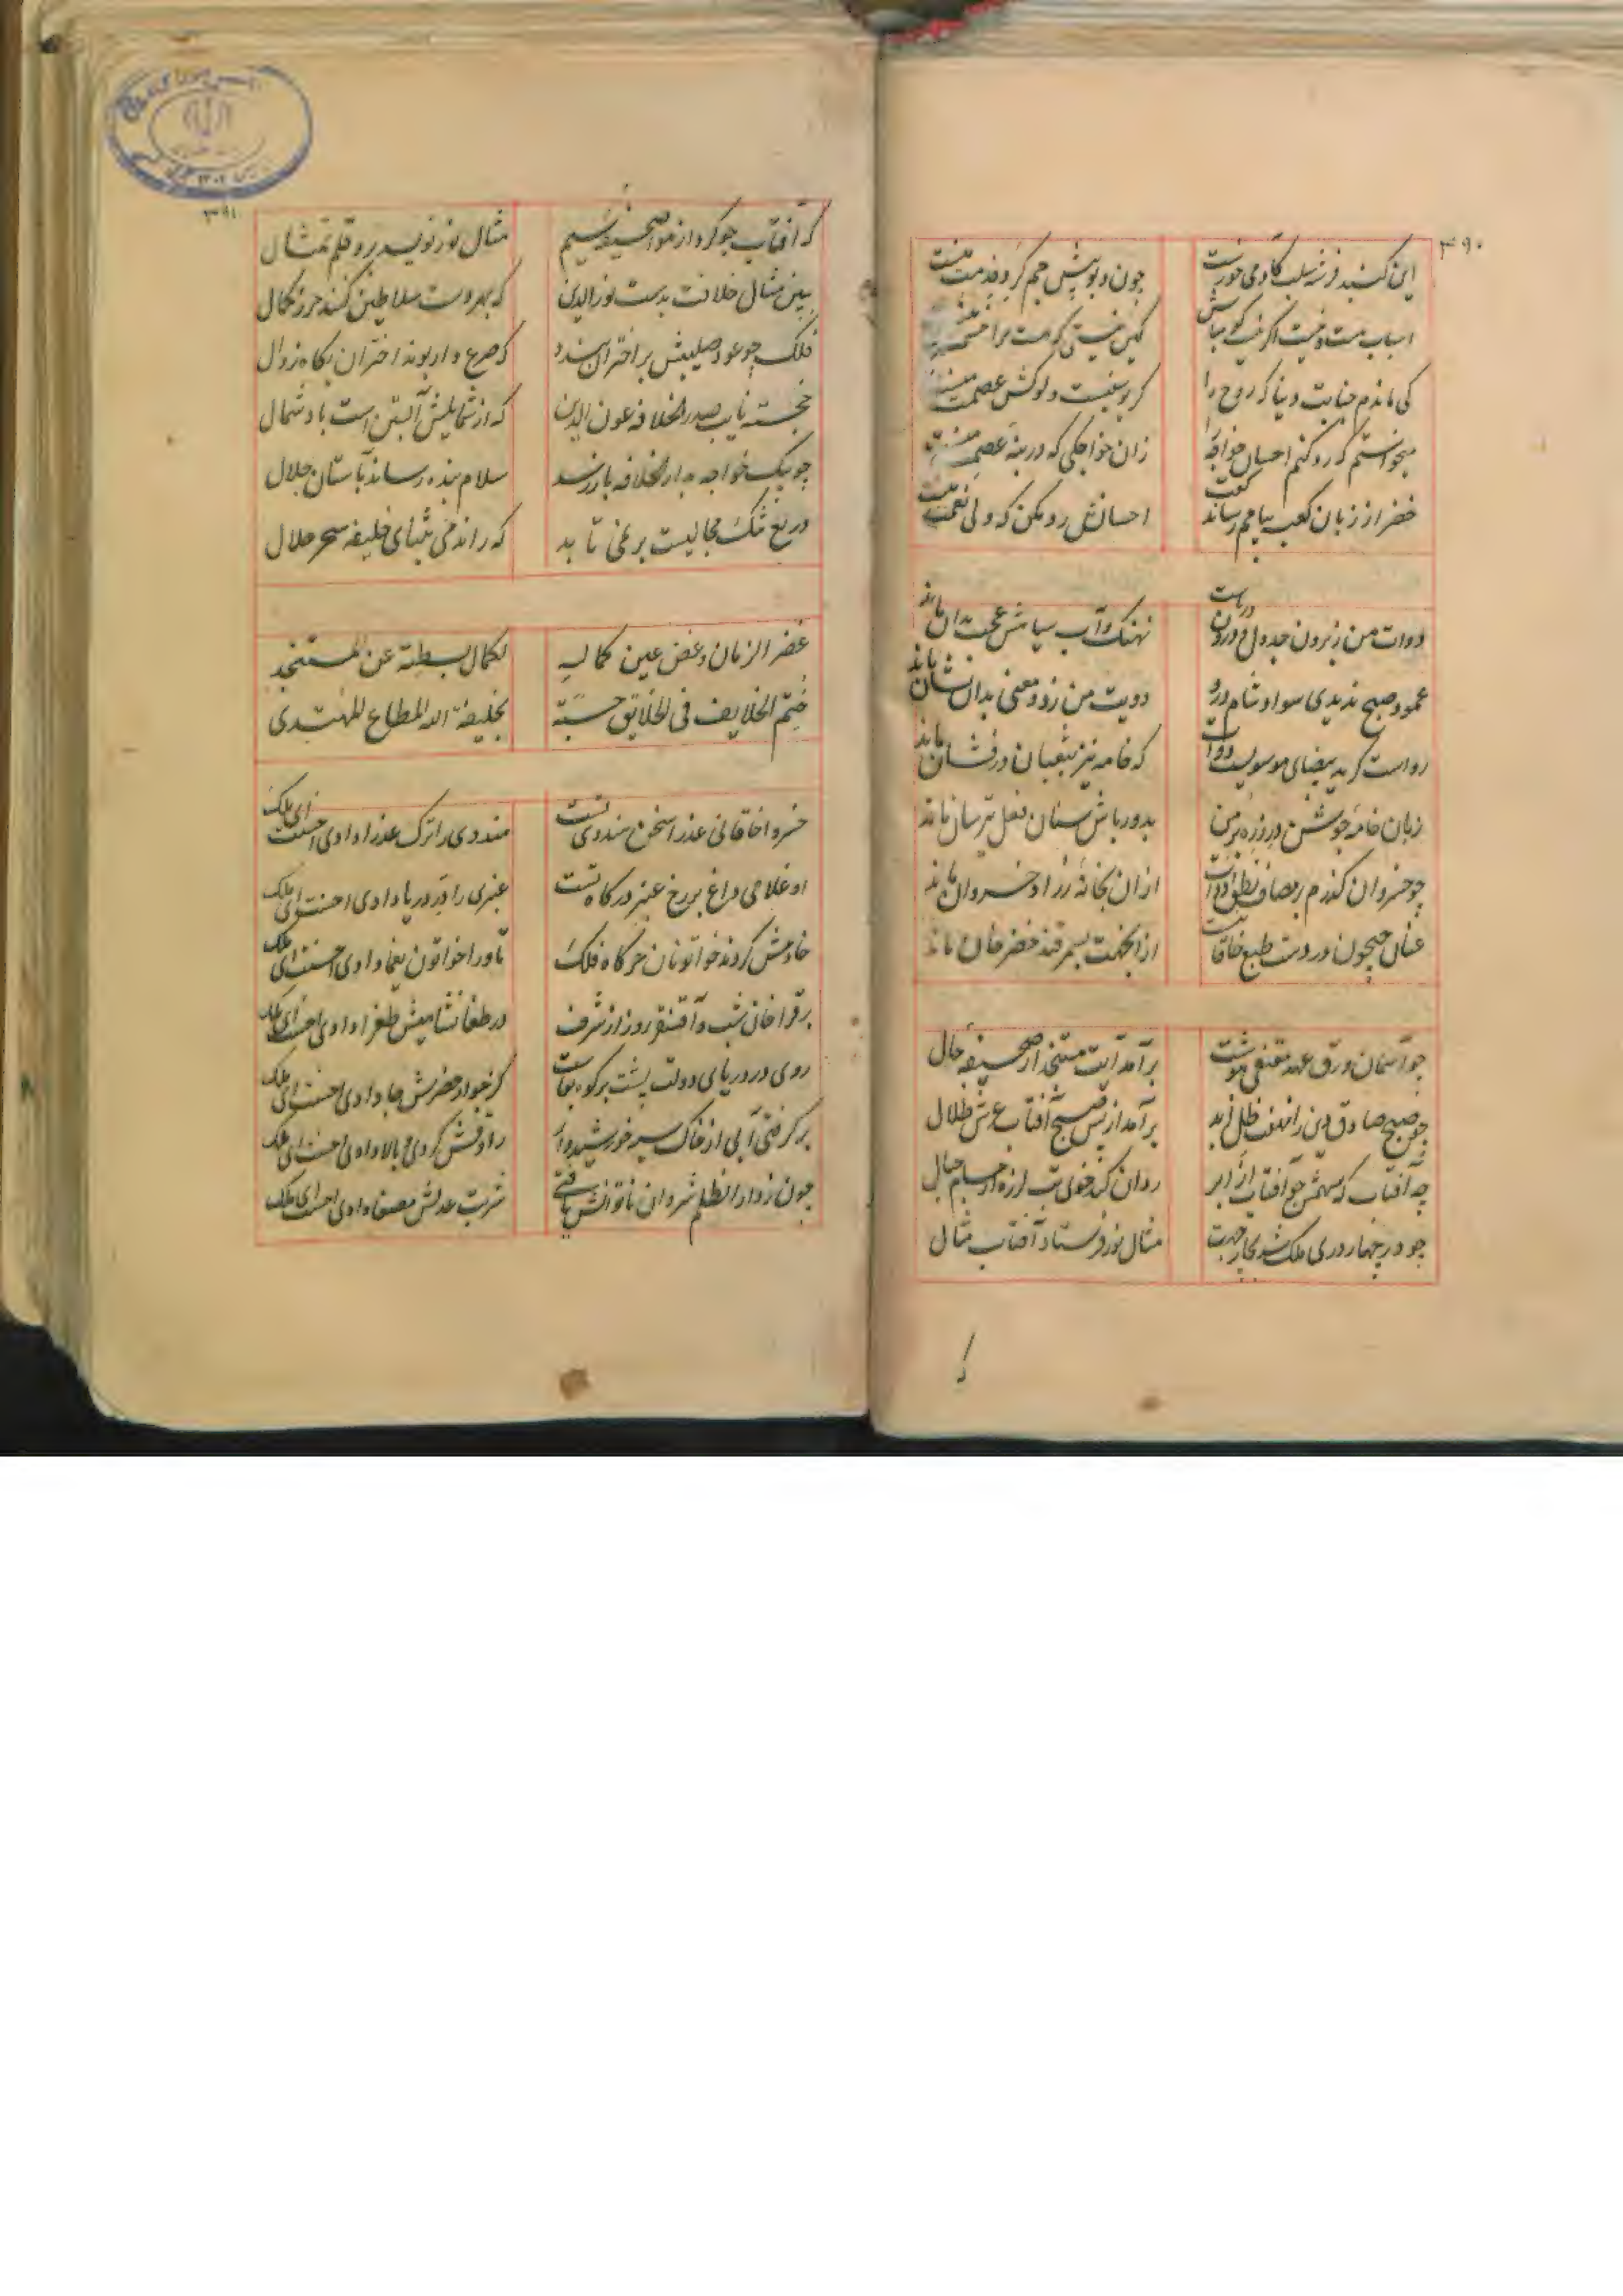 ۳۹۰
این کنبد فرشته سلب کادمی خورست چون دیو پیش جم کرو خدمت منست
اسباب هست و نیست اگر نیست کو مباش کین نیستی که هست مرا حشمت منست
کی ماندم جنابت دنیا که روح را کریوسفیت دلوکش عصمت منست
میخواستم که رد کنم احسان خواجه را زان خواجکی که در بنهٔ عصمت منست
خضر از زبان کعبه پیامم رساند کفت احسانش رد مکن که ولی نعمت منست
دوات من ز برون جدول و درون دریاست نهنک و آب سیاهش عجب بدان ماند
عمود صبح ندیدی سواد شام درو دویت من ز دو معنی بدان نشان ماند
رواست کر ید بیضای موسویست دوات که خامه نیز بثعبان درفشان ماند
زبان خامه جوشن در زره بر من بدورباش سنان فعل ترسان ماند
چو خسروان کذرم بر مصاف نطق و دوات ازان بخانهٔ زراد خسروان ماند
عنان جیحون در دست طبع خاقانیست ازانجهت بسمرقند خضر خان ماند
چو آسمان ورق عهد مقتفی بنوشت برآمد آیت مستنجد از صحیفه حال
چو صبح صادق دین را نهفت ظل ابد برآمد از پس صبح آفتاب عرش ظلال
چه آفتاب که سهمش چو آفتاب از ابر روان کند خوی تب لرزه از مسام جبال
چو در چهار دری ملک شد بچار جهت مثال نور فرستاد آفتاب مثال
که
۳۹۱
که آفتاب چو کرد از هوا صحیفه سیم مثال نور نویسد برو قلم تمثال
ببین مثال خلافت بدست نورالدین که بهر دست سلاطین کنند حرز کمال
فلک چو عود صلیبش بر اختران بندد که صرع دار بوند اختران بکاه زوال
خجسته نایب صدر الخلافه عون الدین که از شمایلش آبستن است باد شمال
چو پیک خواجه بدار الخلافه باز رسد سلام بنده رساند بآستان جلال
دریغ تنک مجالیست بر نمی تابد که راندمی بثنای خلیفه سحر حلال
غضر الزمان و غض عین کماله لکمال بسطته عن المستنجد
ختم الخلایف فی الخلایق حسبة بخلیفة الله المطاع المهتدی
خسروا خاقانی عذرا سخن هندوی تست هندوی را ترک عذرا دادی احسنت ای ملک
او غلامی داغ بر رخ عنبر درکاه تست عنبری را در دریا دادی احسنت ای ملک
خادمش کردند خواتونان خرکاه فلک تا ورا خواتون یغما دادی احسنت ای ملک
بر قراخان شب و آقسنقر روز از شرف در طغانشاهیش طغرا دادی احسنت ای ملک
روی در دریای دولت پشت بر کوه بقاست کز جوار حضرتش جا دادی احسنت ای ملک
بر کرفتی آبی از خاک سیه خورشیدوار رادقش کردی و بالا دادی احسنت ای ملک
چون ز داد الظلم شروان ناتوانش یافتی شربت عدلش مصفا دادی احسنت ای ملک